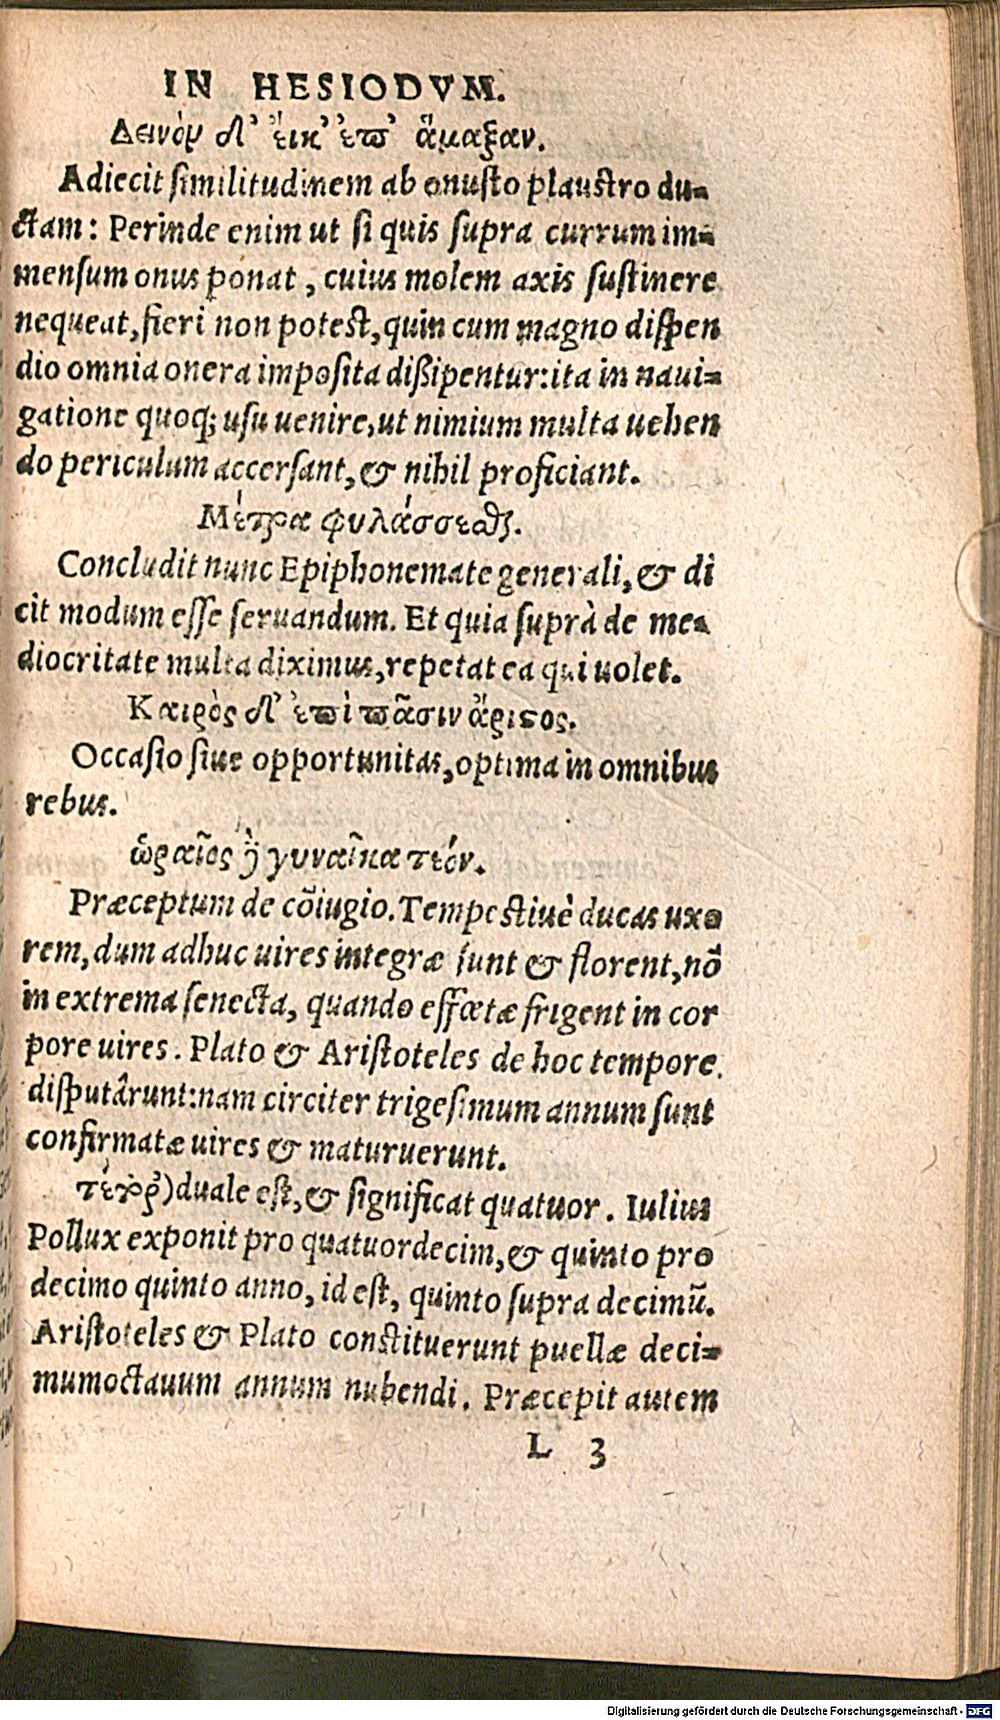 IN HESIODVM.
Δεινὸν δ' εἴκ' ἐπ' ἄμαξαν.
Adiecit similitudinem ab onusto plaustro du-
ctam: Perinde enim ut si quis supra currum im-
mensum onus ponat, cuius molem axis sustinere
nequeat, fieri non potest, quin cum magno dispen
dio omnia onera imposita dißipentur: ita in naui-
gatione quoq; usu uenire, ut nimium multa uehen
do periculum accersant, & nihil proficiant.
Μέτρα φυλάσσεσθαι.
Concludit nunc Epiphonemate generali, & di
cit modum esse seruandum. Et quia suprà de me-
diocritate multa diximus, repetat ea qui uolet.
Καιρὸς δ' ἐπὶ πᾶσιν ἄριστος.
Occasio siue opportunitas, optima in omnibus
rebus.
ὡραῖος ἢ γυναῖκα τεόν.
Præceptum de cõiugio. Tempestiuè ducas uxo
rem, dum adhuc uires integræ sunt & florent, nõ
in extrema senecta, quando effœtæ frigent in cor
pore uires. Plato & Aristoteles de hoc tempore
disputârunt: nam circiter trigesimum annum sunt
confirmatæ uires & maturuerunt.
duale est, & significat quatuor. Iulius
Pollux exponit pro quatuordecim, & quinto pro
decimo quinto anno, id est, quinto supra decimũ.
Aristoteles & Plato constituerunt puellæ deci-
mumoctauum annum nubendi. Præcepit autem
L 3
Digitalisierung gefördert durch die Deutsche Forschungsgemeinschaft - DFG